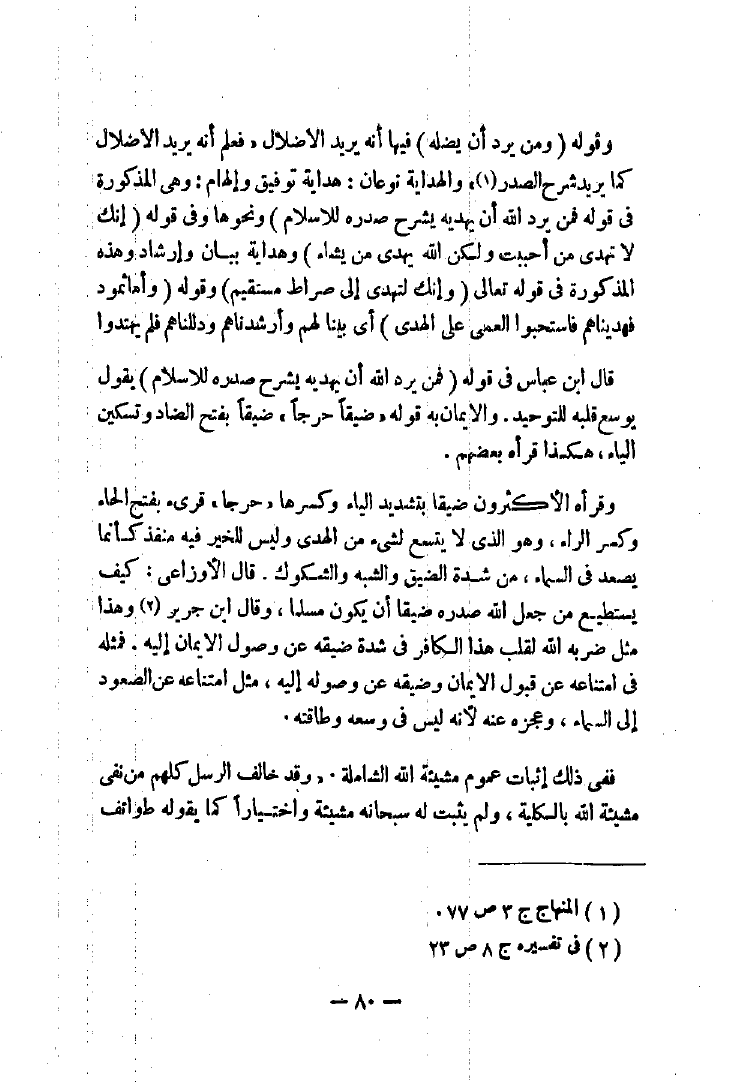 وقوله ( ومن يرد أن يضله ) فيها أنه يريد الاضلال ، فعلم أنه يريد الاضلال
كما يريد شرح الصدر(١)، والهداية نوعان : هداية توفيق وإلهام : وهى المذكورة
فى قوله فمن يرد الله أن يهديه يشرح صدره للاسلام ) ونحوها وفى قوله ( إنك
لا تهدى من أحببت ولكن الله يهدى من يشاء ) وهداية بيان وإرشاد وهذه
المذكورة فى قوله تعالى ( وإنك لتهدى إلى صراط مستقيم) وقوله ( وأما ثمود
فهديناهم فاستحبوا العمى على الهدى ) أى بينا لهم وأرشدناهم ودللناهم فلم يهتدوا
قال ابن عباس فى قوله ( فمن يرد الله أن يهديه يشرح صدره للاسلام ) يقول
يوسع قلبه للتوحيد . والايمان به قوله « ضيقاً حرجاً » ضيقاً بفتح الضاد وتسكين
الياء ، هكذا قرأه بعضهم .
وقرأه الأكثرون ضيقا بتشديد الياء وكسرها « حرجا » قرىء بفتح الحاء
وكسر الراء ، وهو الذى لا يتسع لشىء من الهدى وليس للخير فيه منفذ كأنما
يصعد فى السماء ، من شدة الضيق والشبه والشكوك . قال الأوزاعى : كيف
يستطيع من جعل الله صدره ضيقا أن يكون مسلما ، وقال ابن جرير (٢) وهذا
مثل ضربه الله لقلب هذا الكافر فى شدة ضيقه عن وصول الايمان إليه . فمثله
فى امتناعه عن قبول الايمان وضيقه عن وصوله إليه ، مثل امتناعه عن الصعود
إلى السماء ، وعجزه عنه لأنه ليس فى وسعه وطاقته .
ففى ذلك إثبات عموم مشيئة الله الشاملة . « وقد خالف الرسل كلهم من نفى
مشيئة الله بالكلية ، ولم يثبت له سبحانه مشيئة واختياراً كما يقوله طوائف
(١) المنهاج ج ٣ ص ٧٧ .
(٢) فى تفسيره ج ٨ ص ٢٣
— ٨٠ —